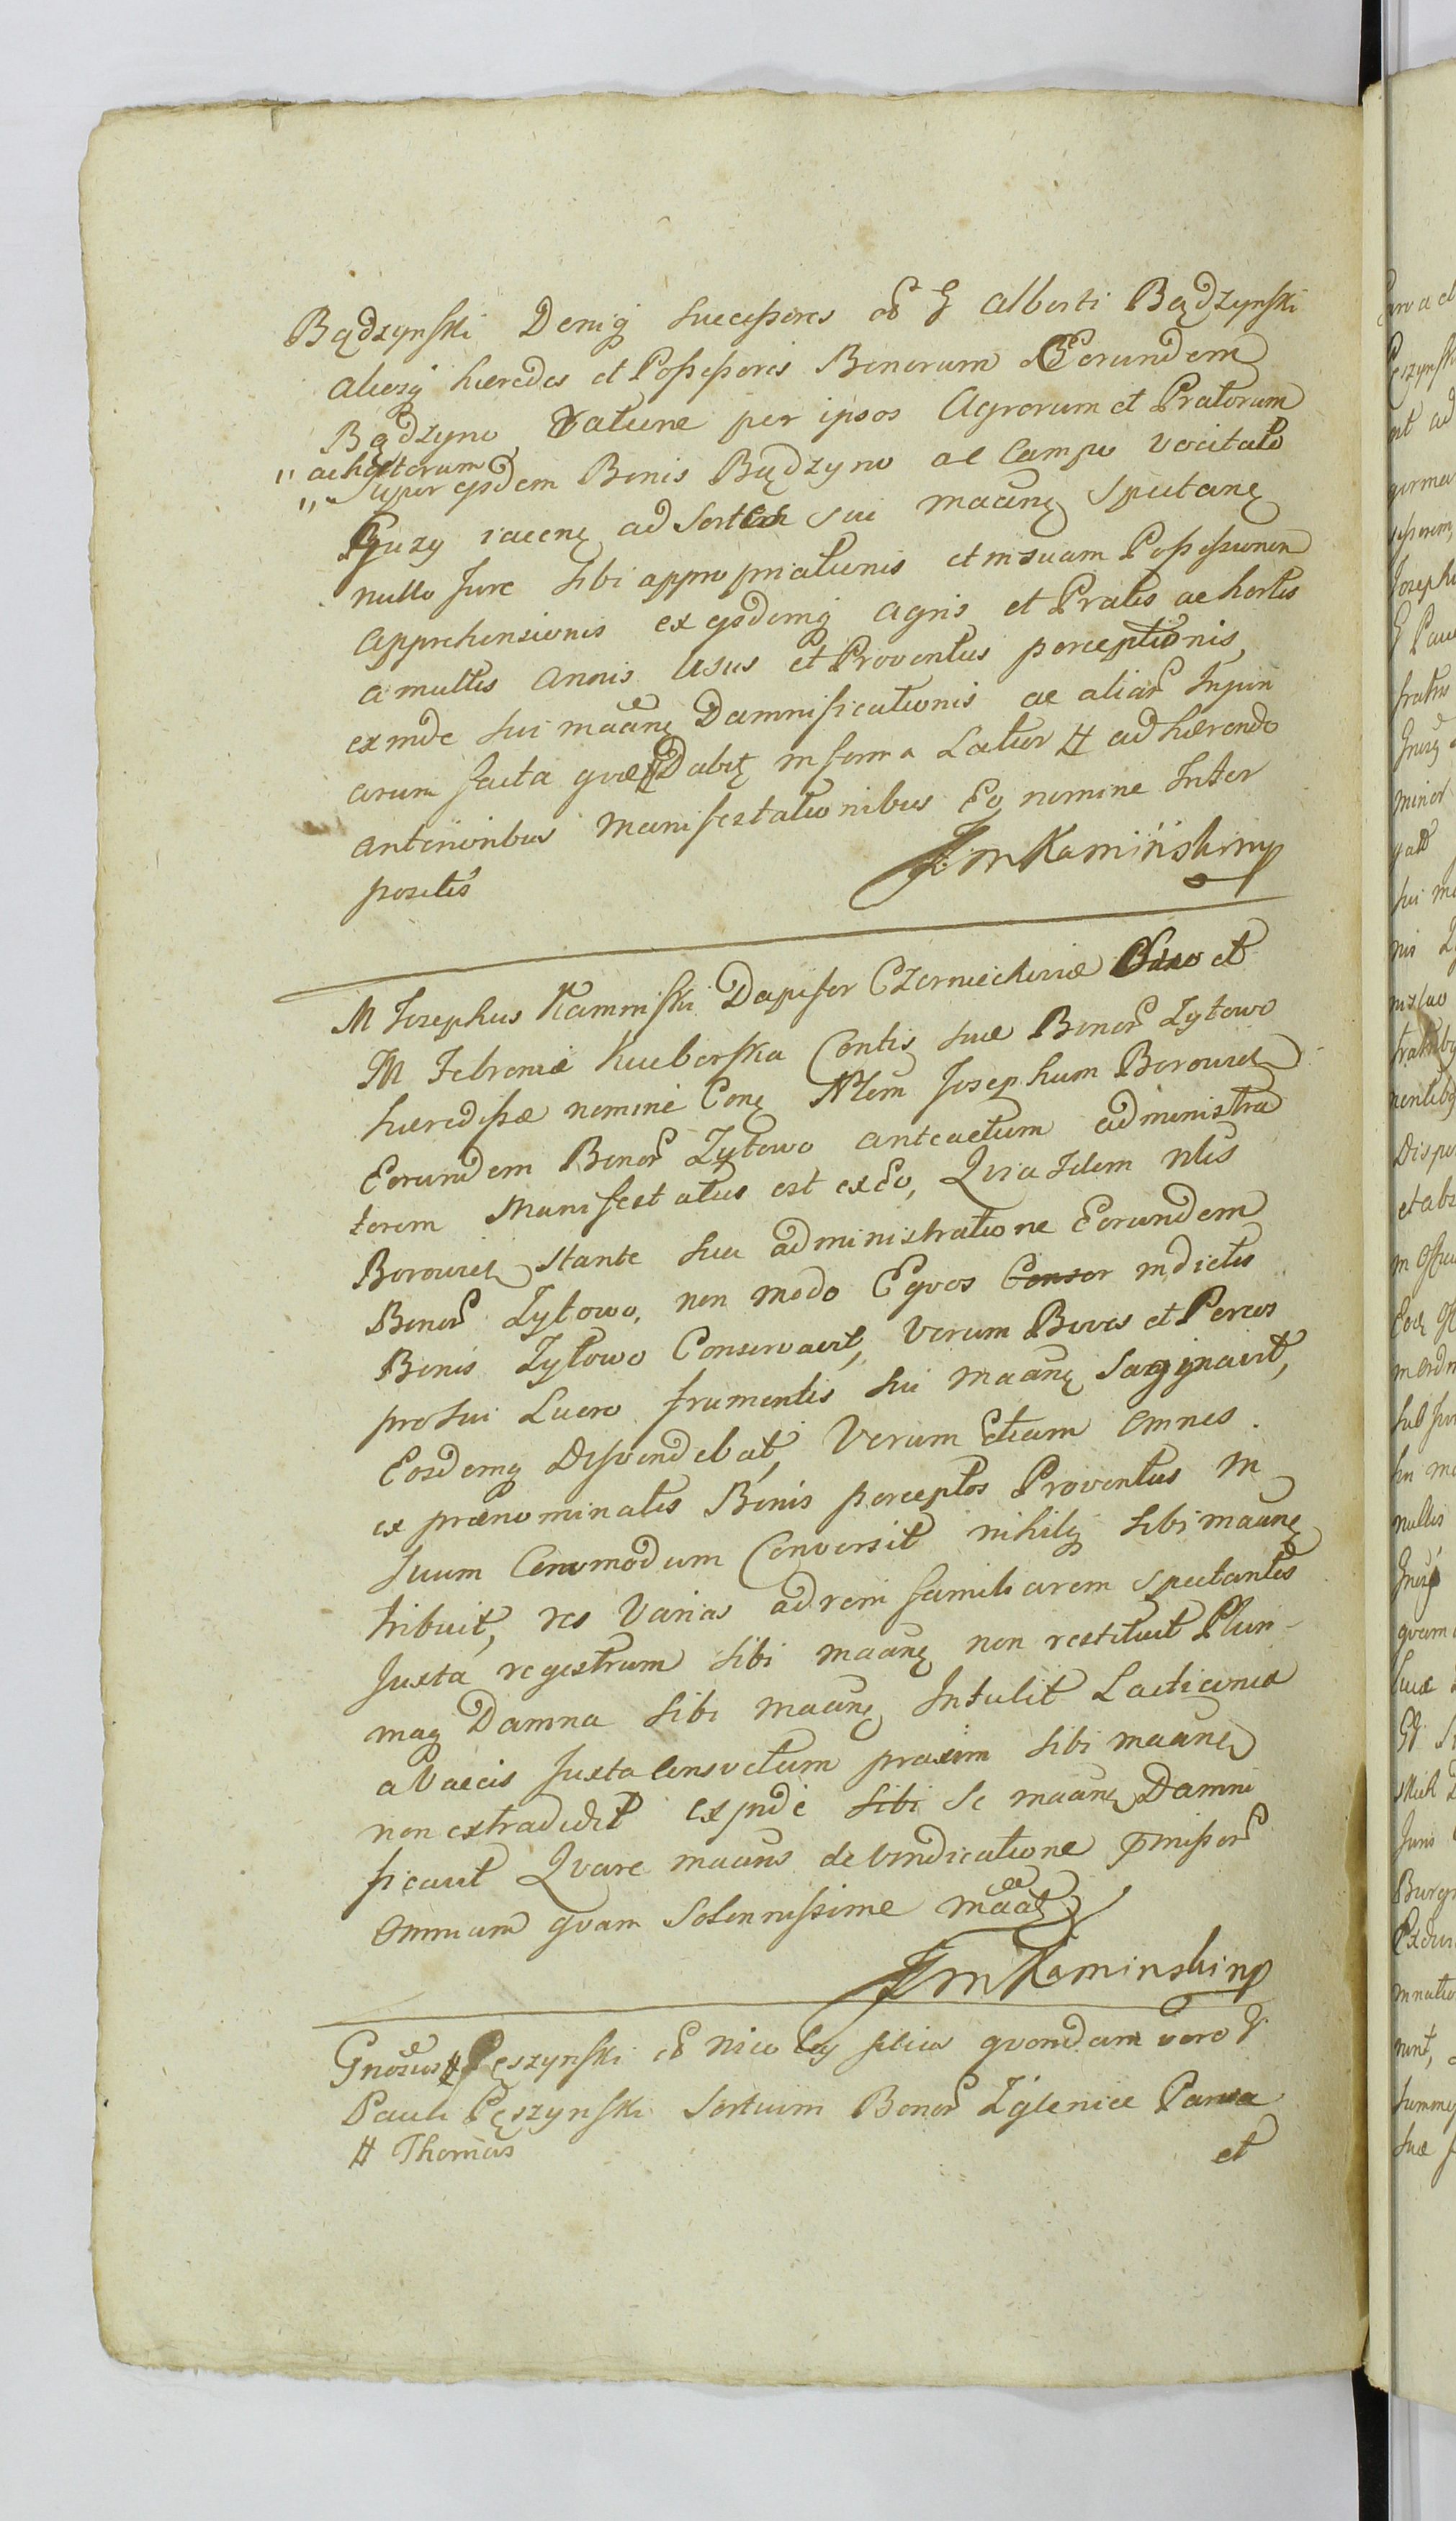 Bądzynski Deniq successores olim G Alberti Bądzynski
aliosq hæredes et Possessores Bonorum Eorundem
Bądzyno ratione per ipsos Agrorum et Pratorum
" ac hortorum
"" super ijsdem Bonis Bądzyno ac Campo vocitato
Guzy iacen ad Sortem sui maane Spectane
nullo Jure sibi appropriationis et in suam Possessionem
apprehensionis ex ijsdemq agris et Pratis ac hortis
a multis annis usus et Proventus perceptionis,
exinde sui maane Damnificationis ac aliar Injuri
arum facta quæ Dabit in forma Latior # adhærendo
anterioribus manifestationibus Eo nomine Inter
positis
J m Kamiński mp
M Josephus Kaminski Dapifer Czerniechoviæ suo et
M Febroniæ Kuckorska Contis suæ Bonor Zytowo
hæredissæ nomine Cone Nlem Josephum Borowich
Eorundem Bonor Zytowo anteactum administra
torem Manifestatus est ex Eo, Quia Idem Nlis
Borowich Stante sua administratione Eorundem
Bonor Zytowo, non modo Equos Censor in dictis
Bonis Zytowo Conservavit, verum Boves et Porcos
pro sui Lucro frumentis sui maane Sagginavit,
Eosdemq Disvendebat, Verum Etiam omnes
ex prænominatis Bonis perceptos Proventus in
suum Commodum Conversit nihilq sibi maane
tribuit, res Varias ad rem familiarem spectantes
Juxta regestrum sibi maane non restituit Pluri-
maq Damna sibi maane Intulit Lacticinia
a Vaccis Juxta Consvetum praxim sibi maane
non extradidit exinde sibi se maane Damni
ficavit Quare maans de vindicatione pmissor
omnium quam Solennissime maat
J m Kaminski mp
Gnosus # Pęszynski olim Nicolaj filius quondam vero G
Pauli Pęszynski Sortium Bonor Zglenice Parva
# Thomas
et